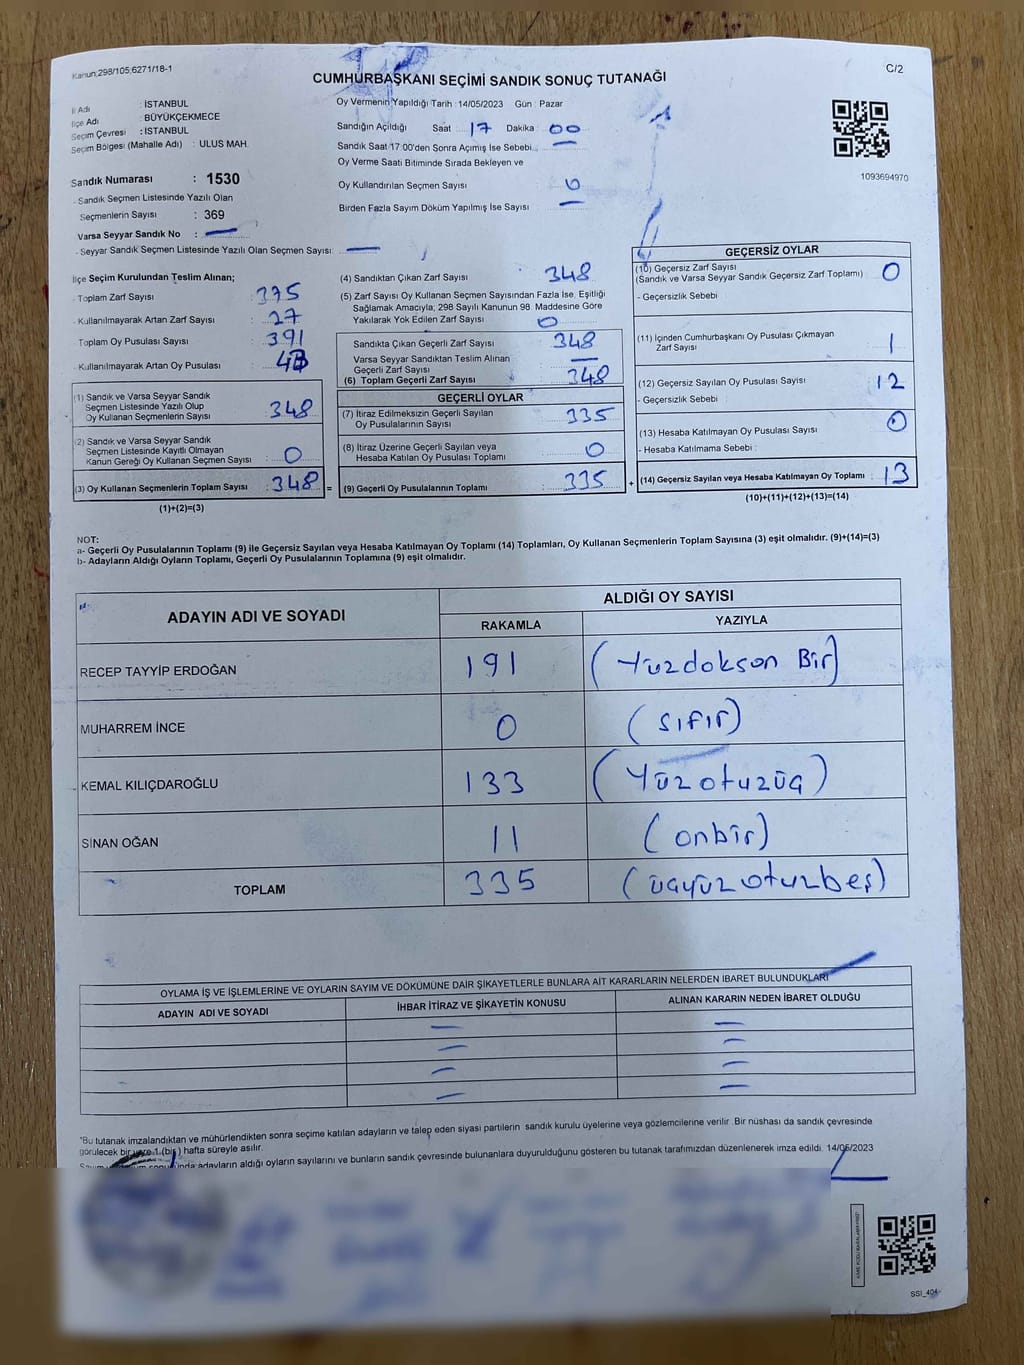 Kanun;298/105;6271/18-1
C/2
CUMHURBAŞKANI SEÇİMİ SANDIK SONUÇ TUTANAĞI
İl Adı : İSTANBUL
İlçe Adı : BÜYÜKÇEKMECE
Seçim Çevresi : İSTANBUL
Seçim Bölgesi (Mahalle Adı) : ULUS MAH.
Oy Vermenin Yapıldığı Tarih : 14/05/2023 Gün : Pazar
Sandığın Açıldığı Saat : 17 Dakika : 00
Sandık Saat 17:00'den Sonra Açılmış İse Sebebi
Oy Verme Saati Bitiminde Sırada Bekleyen ve
Oy Kullandırılan Seçmen Sayısı : 0
Birden Fazla Sayım Döküm Yapılmış İse Sayısı : —
1093694970
Sandık Numarası : 1530
- Sandık Seçmen Listesinde Yazılı Olan
Seçmenlerin Sayısı : 369
Varsa Seyyar Sandık No : —
- Seyyar Sandık Seçmen Listesinde Yazılı Olan Seçmen Sayısı: —
İlçe Seçim Kurulundan Teslim Alınan;
- Toplam Zarf Sayısı : 375
- Kullanılmayarak Artan Zarf Sayısı : 27
- Toplam Oy Pusulası Sayısı : 391
- Kullanılmayarak Artan Oy Pusulası :
(1) Sandık ve Varsa Seyyar Sandık
Seçmen Listesinde Yazılı Olup
Oy Kullanan Seçmenlerin Sayısı : 348
(2) Sandık ve Varsa Seyyar Sandık
Seçmen Listesinde Kayıtlı Olmayan
Kanun Gereği Oy Kullanan Seçmen Sayısı : 0
(3) Oy Kullanan Seçmenlerin Toplam Sayısı : 348 =
(1)+(2)=(3)
(4) Sandıktan Çıkan Zarf Sayısı : 348
(5) Zarf Sayısı Oy Kullanan Seçmen Sayısından Fazla İse, Eşitliği
Sağlamak Amacıyla; 298 Sayılı Kanunun 98. Maddesine Göre
Yakılarak Yok Edilen Zarf Sayısı : 0
Sandıkta Çıkan Geçerli Zarf Sayısı : 348
Varsa Seyyar Sandıktan Teslim Alınan
Geçerli Zarf Sayısı : —
(6) Toplam Geçerli Zarf Sayısı : 348
GEÇERLİ OYLAR
(7) İtiraz Edilmeksizin Geçerli Sayılan
Oy Pusulalarının Sayısı : 335
(8) İtiraz Üzerine Geçerli Sayılan veya
Hesaba Katılan Oy Pusulası Toplamı : 0
(9) Geçerli Oy Pusulalarının Toplamı : 335 +
GEÇERSİZ OYLAR
(10) Geçersiz Zarf Sayısı : 0
(Sandık ve Varsa Seyyar Sandık Geçersiz Zarf Toplamı)
- Geçersizlik Sebebi
(11) İçinden Cumhurbaşkanı Oy Pusulası Çıkmayan
Zarf Sayısı : 1
(12) Geçersiz Sayılan Oy Pusulası Sayısı : 12
- Geçersizlik Sebebi
(13) Hesaba Katılmayan Oy Pusulası Sayısı : 0
- Hesaba Katılmama Sebebi :
(14) Geçersiz Sayılan veya Hesaba Katılmayan Oy Toplamı : 13
(10)+(11)+(12)+(13)=(14)
NOT:
a- Geçerli Oy Pusulalarının Toplamı (9) ile Geçersiz Sayılan veya Hesaba Katılmayan Oy Toplamı (14) Toplamları, Oy Kullanan Seçmenlerin Toplam Sayısına (3) eşit olmalıdır. (9)+(14)=(3)
b- Adayların Aldığı Oyların Toplamı, Geçerli Oy Pusulalarının Toplamına (9) eşit olmalıdır.
ADAYIN ADI VE SOYADI
ALDIĞI OY SAYISI
RAKAMLA YAZIYLA
RECEP TAYYİP ERDOĞAN 191 (Yüzdokson Bir)
MUHARREM İNCE 0 (sıfır)
KEMAL KILIÇDAROĞLU 133 (Yüzotuzüç)
SİNAN OĞAN 11 (onbir)
TOPLAM 335 (üçyüzotuzbeş)
OYLAMA İŞ VE İŞLEMLERİNE VE OYLARIN SAYIM VE DÖKÜMÜNE DAİR ŞİKAYETLERLE BUNLARA AİT KARARLARIN NELERDEN İBARET BULUNDUKLARI
ADAYIN ADI VE SOYADI İHBAR İTİRAZ VE ŞİKAYETİN KONUSU ALINAN KARARIN NEDEN İBARET OLDUĞU
— —
— —
— —
— —
"Bu tutanak imzalandıktan ve mühürlendikten sonra seçime katılan adayların ve talep eden siyasi partilerin sandık kurulu üyelerine veya gözlemcilerine verilir. Bir nüshası da sandık çevresinde
görülecek bir yere 1 (bir) hafta süreyle asılır.
adayların aldığı oyların sayılarını ve bunların sandık çevresinde bulunanlara duyurulduğunu gösteren bu tutanak tarafımızdan düzenlenerek imza edildi. 14/05/2023
SSI_404